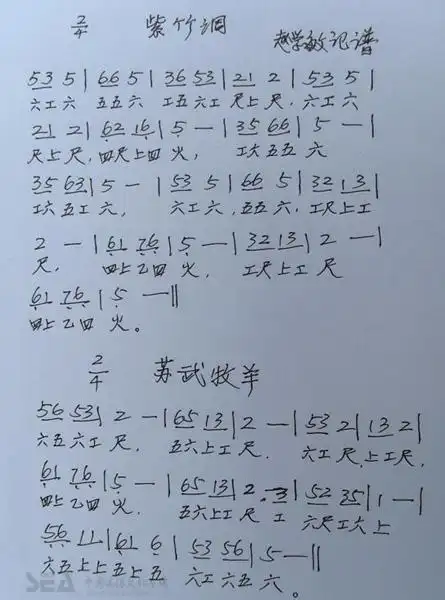 2/4 紫竹调
赵学敏记谱
53 5 | 66 5 | 36 53 | 21 2 | 53 5 |
六工 六 五五 六 工五 六工 尺上 尺, 六工 六
21 2 | 62 16 | 5 — | 35 66 | 5 — |
尺上 尺, 四尺上四 火, 工六五五 六
35 63 | 5 - | 53 5 | 66 5 | 32 13 |
工六 五工 六, 六工 六, 五五 六, 工尺上工
2 — | 61 76 | 5 — | 32 13 | 2 — |
尺, 四上乙四 火, 工尺上工 尺
61 76 | 5 — ‖
四上乙四 火。
2/4 苏武牧羊
56 53 | 2 — | 65 13 | 2 — | 53 2 | 13 2 |
六五六工 尺, 五六上工 尺, 六工 尺, 上工 尺,
61 76 | 5 — | 65 13 | 2. 3 | 52 35 | 1 — |
四上乙四 火, 五六上工尺 工 六尺工六 上
56 11 | 61 6 | 53 56 | 5 — ‖
六五上上五上五 六工六五 六。
SEA